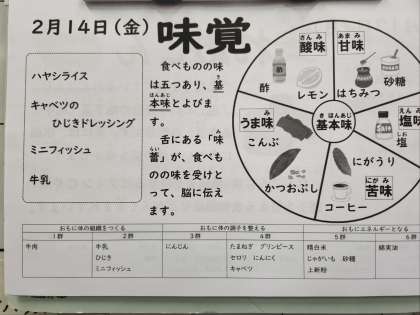 2月14日(金)
味覚
ハヤシライス
キャベツの
ひじきドレッシング
ミニフィッシュ
牛乳
食べものの味
は五つあり、基
本味とよびま
す。
舌にある「味
蕾」が、食べも
のの味を受けと
って、脳に伝え
ます。
さんみ
酸味
あまみ
甘味
酢
レモン
はちみつ
砂糖
うま味
こんぶ
かつおぶし
きほんあじ
基本味
塩味
塩
にがうり
にがみ
苦味
コーヒー
おもに体の組織をつくる
おもに体の調子を整える
おもにエネルギーとなる
1群 2群 3群 4群 5群 6群
牛肉 牛乳 にんじん たまねぎ グリンピース 精白米 綿実油
ひじき セロリ にんにく じゃがいも 砂糖
ミニフィッシュ キャベツ 上新粉